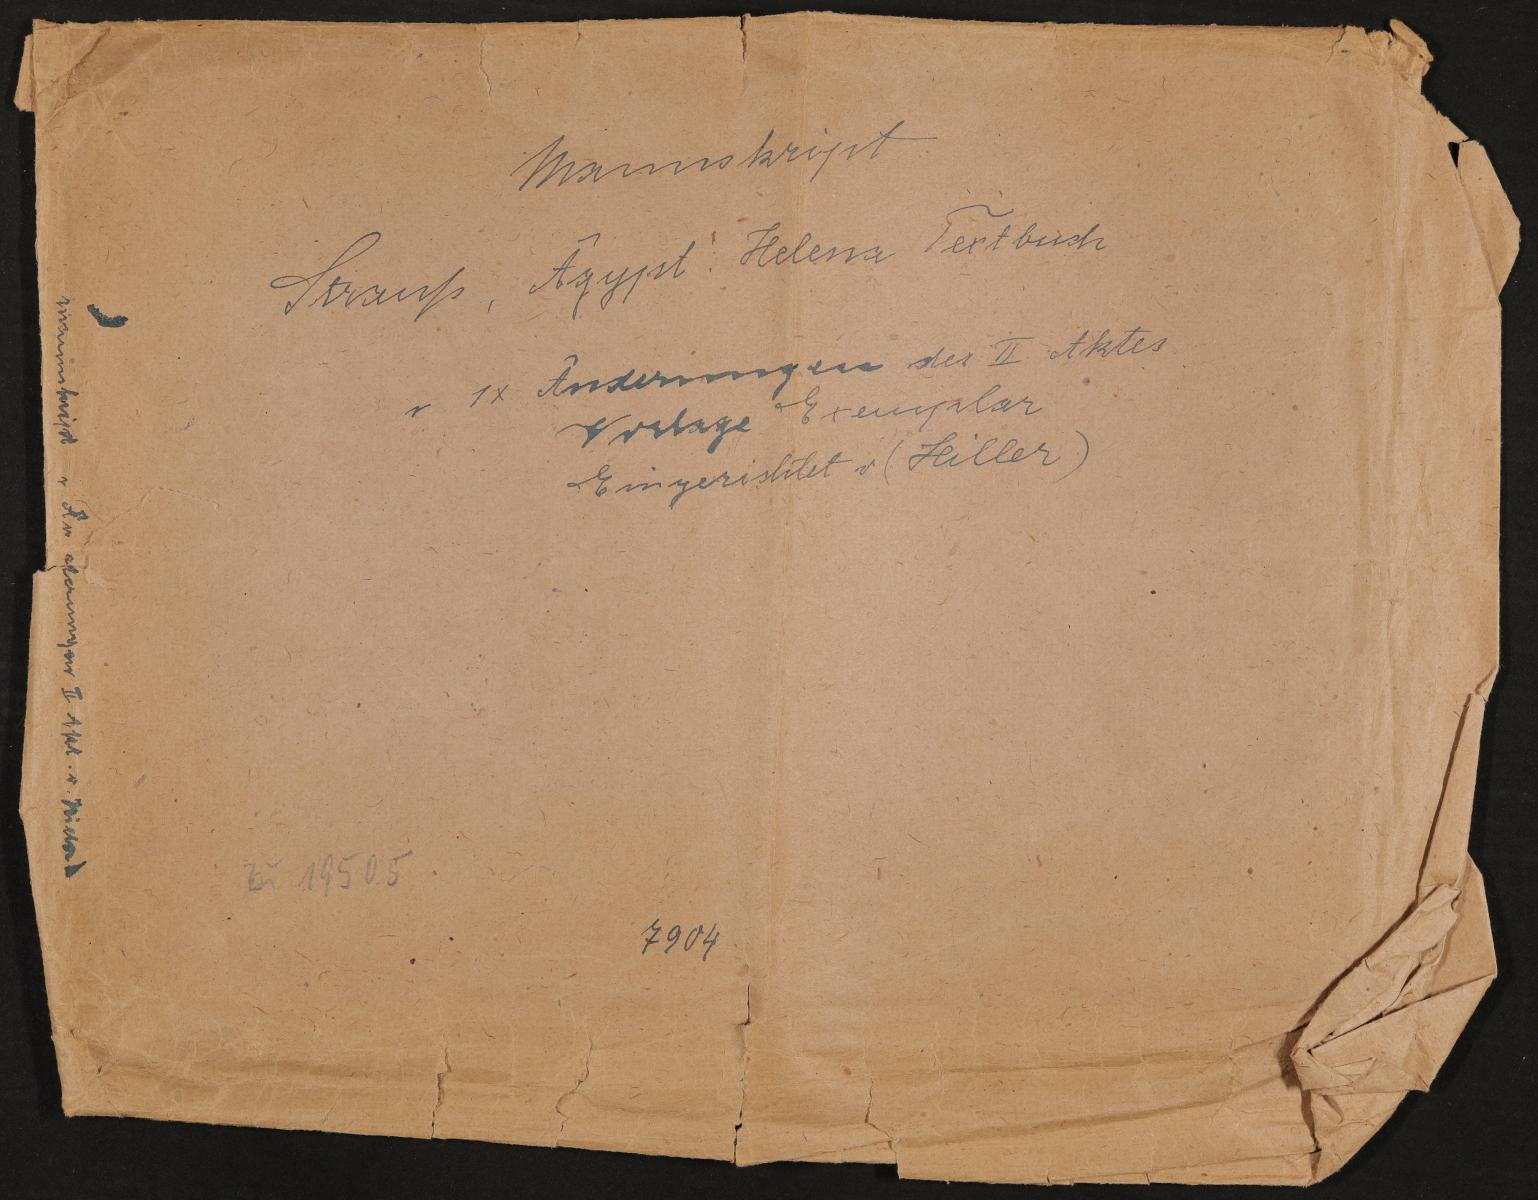 Manuskript
Strauß, Ägypt. Helena Textbuch
v 1x Änderungen des II Aktes
Vorlage Exemplar
Eingerichtet v (Hiller)
Manuskript v Änderungen II Akt. v. Hiller
zu 19505
7904